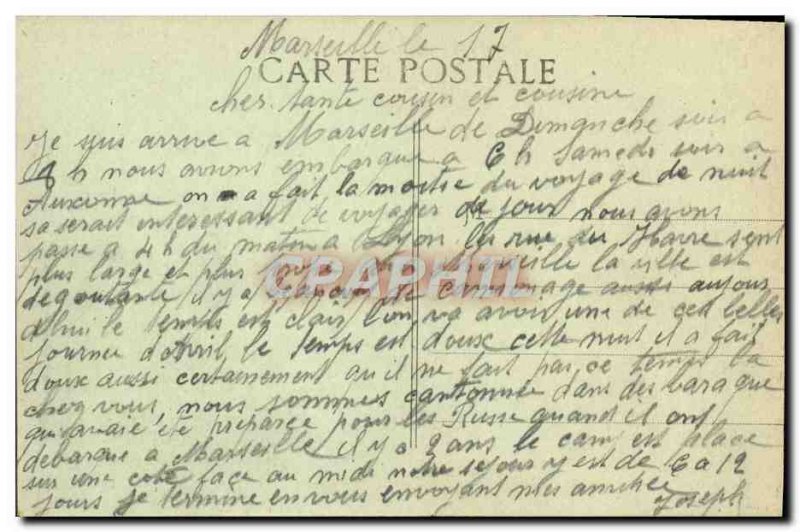 Marseille le 17
CARTE POSTALE
cher tante cousin et cousine
Je suis arrive a Marseille de Dimanche soir a
9 h nous avions embarque a 6 h Samedi soir a
Auxonne on a fait la moitie du voyage de nuit
sa serait interessant de voyager de jour nous avons
passe a 4 h du matin a Lyon les rue du Havre sent
plus large et plus a Marseille la ville est
degoutante il y a de chaumage aussi aujour
dhui le temps est clair l'on va avoir une de ces belles
journee d'Avril le temps est doux cette nuit il a fait
doux aussi certainement qu il ne fait pas ce temps la
chez vous, nous sommes cantonnee dans des baraque
qui avaie ete preparee pour les Russe quand il ont
debarque a Marseille il y a 2 ans le cam est place
sur une cote face au midi notre sejour y est de 6 a 12
jours je termine en vous envoyant mes amitiee
Joseph
CPAPHIL